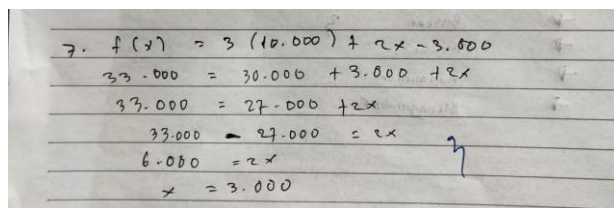 7. f(x) = 3 (10.000) + 2x - 3.000
33.000 = 30.000 + 3.000 + 2x
33.000 = 27.000 + 2x
33.000 - 27.000 = 2x
6.000 = 2x
x = 3.000